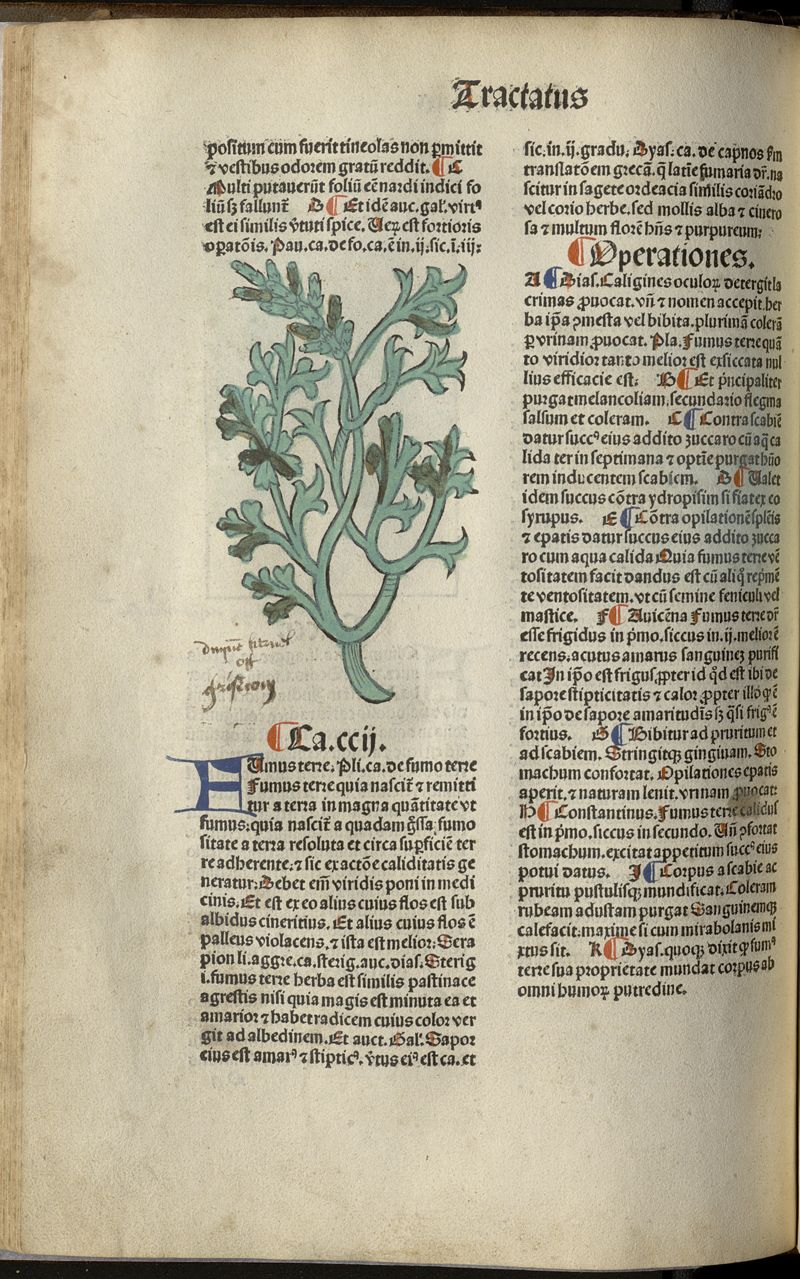 Tractatus
positum cum fuerit tineolas non ꝑmittit
⁊ vestibus odorem gratū reddit. ¶ C
Multi putauerūt foliū eē nardi indici fo
liū sꝫ fallunt᷑ D ¶ Et idē auc. gal'. virtꝰ
est ei similis v̄tuti spice. Ueꝝ est fortioris
oꝑatōis. Pau. ca. de fo. ca. ē in .ij. sic. ī. iij:
¶ Ca. ccij.
FUmus terre. Pli. ca. de fumo terre
Fumus terre quia nascit᷑ ⁊ remitti
tur a terra in magna quātitate vt
fumus: quia nascit᷑ a quadam g̃ssa fumo
sitate a terra resoluta et circa suꝑficiē ter
re adherente: ⁊ sic ex actōe caliditatis ge
neratur: Debet em̄ viridis poni in medi
cinis. Et est ex eo alius cuius flos est sub
albidus cineritius. Et alius cuius flos ē
palleus violaceus. ⁊ ista est melior: Sera
pion li. aggre. ca. sterig. auc. dias. Sterig
i. fumus terre herba est similis pastinace
agrestis nisi quia magis est minuta ea et
amarior ⁊ habet radicem cuius color ver
git ad albedinem. Et auct. Gal'. Sapor
eius est amarꝰ ⁊ stipticꝰ. v̄tus eiꝰ est ca. et
sic. in. ij. gradu. Dyas. ca. de capnos ẜm
translatōem grecā. q̄ latīe fumaria dr̄. na
scitur in sagete ordeacia similis coriādro
vel corio herbe. sed mollis alba ⁊ cinero
sa ⁊ multum florē hn̄s ⁊ purpureum:
¶ Operationes.
A ¶ Dias. Caligines oculoꝝ detergit la
crimas ꝓuocat. vn̄ ⁊ nomen accepit. her
ba ip̄a ꝯmesta vel bibita. plurimā colerā
ꝑ vrinam ꝓuocat. Pla. Fumus terre quā
to viridior tanto melior est exsiccata nul
lius efficacie est: B ¶ Et p̄ncipaliter
purgat melancoliam. secundario flegma
salsum et coleram. C ¶ Contra scabiē
datur succꝰ eius addito zuccaro cū aq̄ ca
lida ter in septimana ⁊ optīe purgat hūo
rem inducentem scabiem. D ¶ Ualet
idem succus cōtra ydropisim si fiat ex eo
syrupus. E ¶ Cōtra opilationē splēis
⁊ epatis datur succus eius addito zucca
ro cum aqua calida Quia fumus terre vē
tositatem facit dandus est cū aliq̄ rep̄mē
te ventositatem. vt cū semine feniculi vel
mastice. F ¶ Auicēna Fumus terre dr̄
esse frigidus in p̄mo. siccus in. ij. meliorē
recens. acutus amarus sanguineꝫ purifi
cat In ip̄o est frigus ꝓpter id q̇d est ibi de
sapore stipticitatis ⁊ calor ꝓpter illō q̇ ē
in ip̄o de sapore amaritudīs sꝫ q̄si frigꝰ ē
fortius. G ¶ Bibitur ad pruritum et
ad scabiem. Stringitqꝫ gingiuam. Sto
machum confortat. Opilationes epatis
aperit. ⁊ naturam lenit. vrinam ꝓuocat:
H ¶ Constantinus. Fumus terre calidus
est in p̄mo. siccus in secundo. Un̄ ꝯfortat
stomachum. excitat appetitum succꝰ eius
potui datus. J ¶ Corpus a scabie ac
pruritu pustulisqꝫ mundificat. Coleram
rubeam adustam purgat Sanguinemqꝫ
calefacit: maxime si cum mirabolanis mi
xtus sit. K ¶ Dyas. quoqꝫ dixit ꝙ fumꝰ
terre sua proprietate mundat corpus ab
omni humoꝝ putredine.